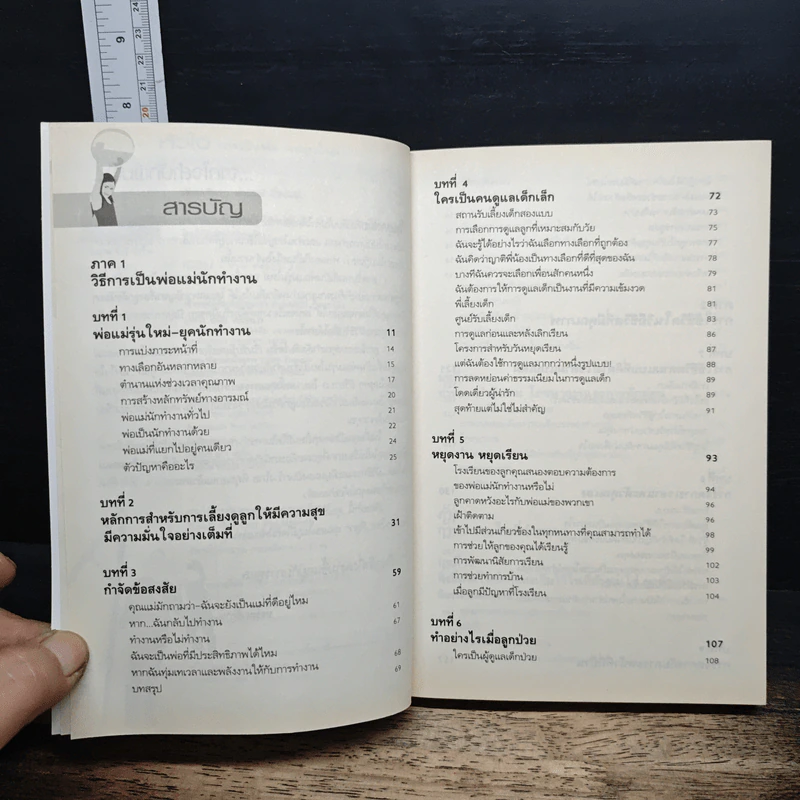 9
8
24
23
22
21
20
สารบัญ
ภาค 1
วิธีการเป็นพ่อแม่นักทำงาน
บทที่ 1
พ่อแม่รุ่นใหม่-ยุคนักทำงาน 11
การแบ่งภาระหน้าที่ 14
ทางเลือกอันหลากหลาย 15
ตำนานแห่งช่วงเวลาคุณภาพ 17
การสร้างหลักทรัพย์ทางอารมณ์ 20
พ่อแม่นักทำงานทั่วไป 21
พ่อเป็นนักทำงานด้วย 22
พ่อแม่ที่แยกไปอยู่คนเดียว 24
ตัวปัญหาคืออะไร 25
บทที่ 2
หลักการสำหรับการเลี้ยงดูลูกให้มีความสุข
มีความมั่นใจอย่างเต็มที่ 31
บทที่ 3 59
กำจัดข้อสงสัย
คุณแม่มักถามว่า-ฉันจะยังเป็นแม่ที่ดีอยู่ไหม 61
หาก...ฉันกลับไปทำงาน 67
ทำงานหรือไม่ทำงาน
ฉันจะเป็นพ่อที่มีประสิทธิภาพได้ไหม 68
หากฉันทุ่มเทเวลาและพลังงานให้กับการทำงาน 69
บทสรุป
บทที่ 4
ใครเป็นคนดูแลเด็กเล็ก 72
สถานรับเลี้ยงเด็กสองแบบ 73
การเลือกการดูแลลูกที่เหมาะสมกับวัย 75
ฉันจะรู้ได้อย่างไรว่าฉันเลือกทางเลือกที่ถูกต้อง 77
ฉันคิดว่าญาติพี่น้องเป็นทางเลือกที่ดีที่สุดของฉัน 78
บางทีฉันควรจะเลือกเพื่อนสักคนหนึ่ง 79
ฉันต้องการให้การดูแลเด็กเป็นงานที่มีความเข้มงวด 81
พี่เลี้ยงเด็ก 81
ศูนย์รับเลี้ยงเด็ก 83
การดูแลก่อนและหลังเลิกเรียน 87
โครงการสำหรับวันหยุดเรียน 87
แต่ฉันต้องใช้การดูแลมากกว่าหนึ่งรูปแบบ! 88
การลดหย่อนค่าธรรมเนียมในการดูแลเด็ก 89
โดดเดี่ยวผู้น่ารัก 89
สุดท้ายแต่ไม่ใช่ไม่สำคัญ 91
บทที่ 5
หยุดงาน หยุดเรียน 93
โรงเรียนของลูกคุณสนองตอบความต้องการ
ของพ่อแม่นักทำงานหรือไม่ 94
ลูกคาดหวังอะไรกับพ่อแม่ของพวกเขา 96
เฝ้าติดตาม 96
เข้าไปมีส่วนเกี่ยวข้องในทุกหนทางที่คุณสามารถทำได้ 98
การช่วยให้ลูกของคุณได้เรียนรู้ 99
การพัฒนานิสัยการเรียน 102
การช่วยทำการบ้าน 103
เมื่อลูกมีปัญหาที่โรงเรียน 104
บทที่ 6
ทำอย่างไรเมื่อลูกป่วย 107
ใครเป็นผู้ดูแลเด็กป่วย 108